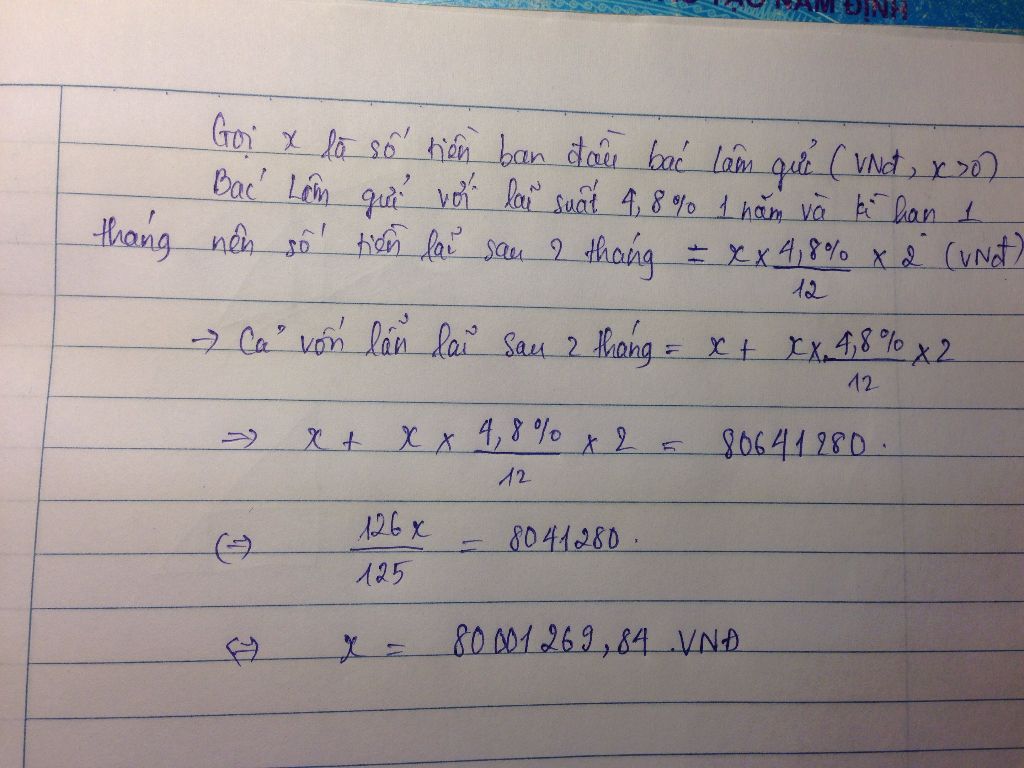 TẠO NAM ĐỊNH
Gọi x là số tiền ban đầu bác Lâm gửi (VNđ, x>0)
Bác Lâm gửi với lãi suất 4,8% 1 năm và kì hạn 1
tháng nên số tiền lãi sau 2 tháng = x × 4,8%/12 × 2 (VNđ)
→ Cả vốn lẫn lãi sau 2 tháng = x + x × 4,8%/12 × 2
=> x + x × 4,8%/12 × 2 = 80641280.
(=> 126x/125 = 8041280.
<=> x = 80001269,84.VNĐ